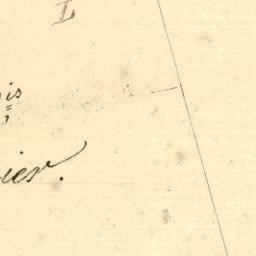 L
is
ier.